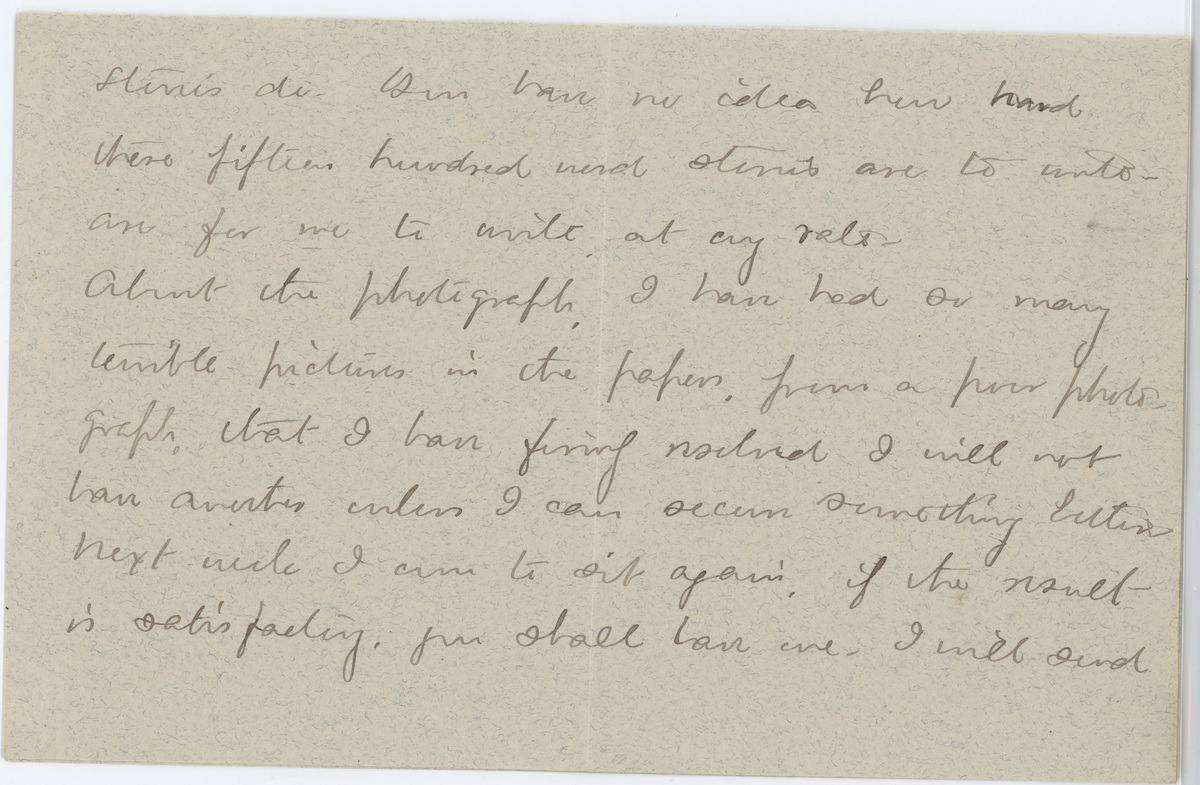 stories do. You have no idea how hard
these fifteen hundred word stories are to write -
are for me to write, at any rate -
About the photograph, I have had so many
terrible pictures in the papers, from a poor photo-
graph, that I have firmly resolved I will not
have another unless I can secure something better.
Next week I am to sit again, if the result
is satisfactory, you shall have one. I will send